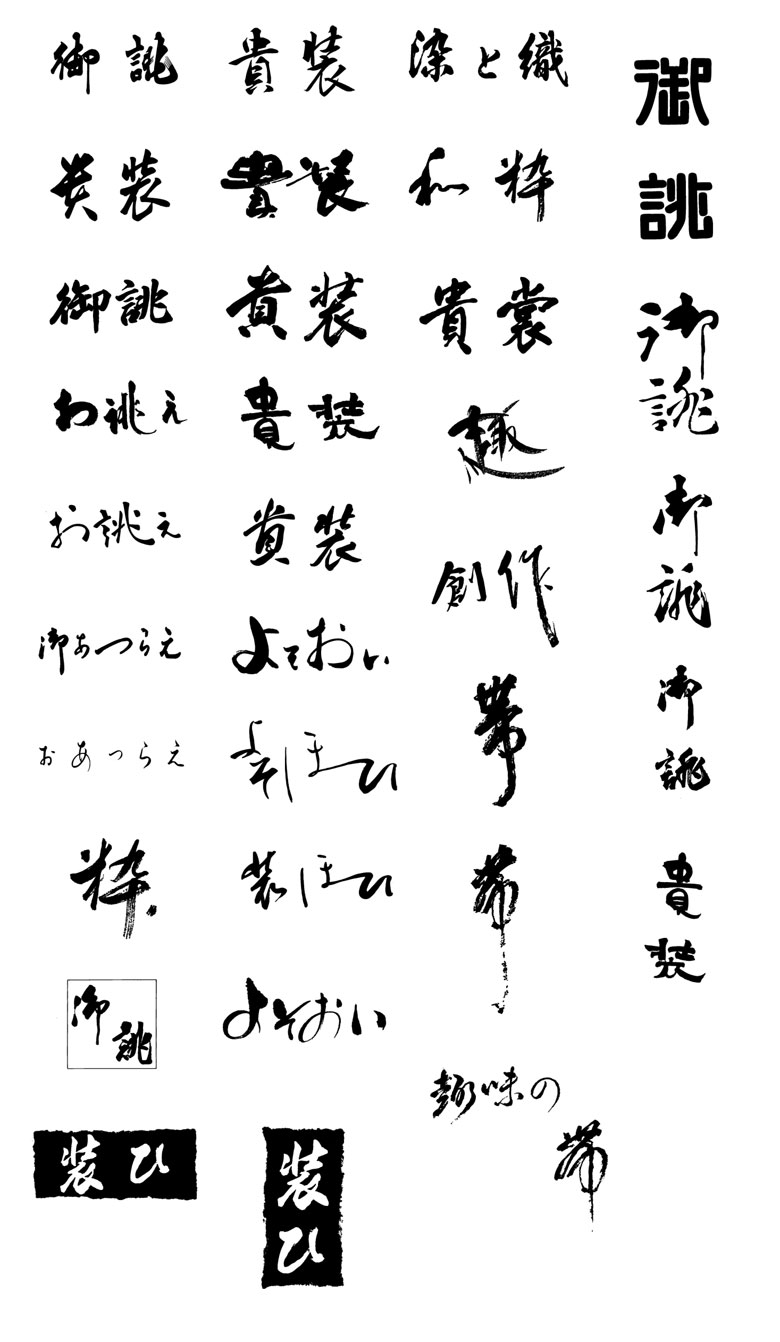 御誂
貴装
御誂
お誂え
お誂え
御あつらえ
おあつらえ
粋
御誂
装ひ
貴装
貴装
貴装
貴装
貴装
よそおい
よそほひ
装ほひ
よそおい
装ひ
染と織
和粋
貴裳
趣
創作
帯
帯
趣味の
帯
御誂
御誂
御誂
御誂
貴装